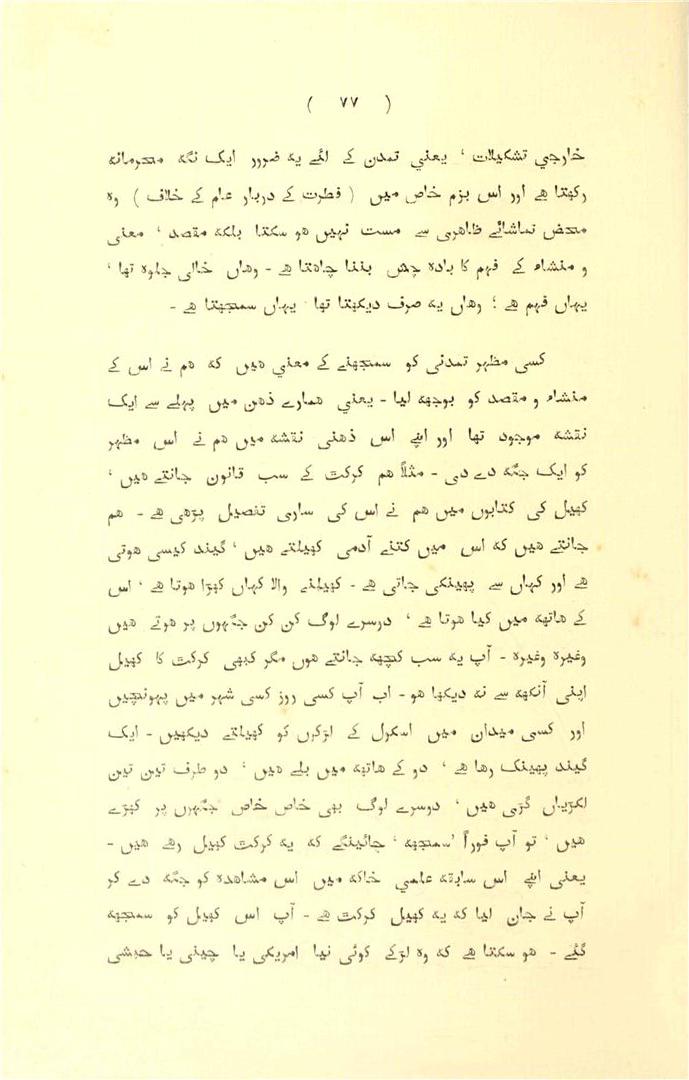 ( ۷۷ )
خارجي تشکیلات ، یعني تمدن کے لئے یہ ضرور ایک نگہ محرمانہ
رکھتا ہے اور اس بزم خاص میں ( فطرت کے دربار عام کے خلاف ) وہ
محض تماشائے ظاہری سے مست نہیں ہو سکتا بلکہ مقصد ، معنی
و منشاء کے فہم کا بادہ چش بننا چاہتا ہے - وہاں خالی جلوہ تھا ،
یہاں فہم ہے ؛ وہاں یہ صرف دیکھتا تھا یہاں سمجھتا ہے -
کسی مظہر تمدنی کو سمجھنے کے معني ہیں کہ ہم نے اس کے
منشاء و مقصد کو بوجھہ لیا - یعني ہمارے ذہن میں پہلے سے ایک
نقشہ موجود تھا اور اپنے اس ذہنی نقشہ میں ہم نے اس مظہر
کو ایک جگہ دے دی - مثلاً ہم کرکٹ کے سب قانون جانتے ہیں ،
کھیل کی کتابوں میں ہم نے اس کی ساری تفصیل پڑھی ہے - ہم
جانتے ہیں کہ اس میں کتنے آدمی کھیلتے ہیں ، گیند کیسی ہوتی
ہے اور کہاں سے پھینکی جاتی ہے - کھیلنے والا کہاں کھڑا ہوتا ہے ، اس
کے ہاتھہ میں کیا ہوتا ہے ، دوسرے لوگ کن کن جگہوں پر ہوتے ہیں
وغیرہ وغیرہ - آپ یہ سب کچھہ جانتے ہوں مگر کبھی کرکٹ کا کھیل
اپنی آنکھہ سے نہ دیکھا ہو - اب آپ کسی روز کسی شہر میں پہونچیں
اور کسی میدان میں اسکول کے لڑکوں کو کھیلتے دیکھیں - ایک
گیند پھینک رہا ہے ، دو کے ہاتھہ میں بلے ہیں ، دو طرف تین تین
لکڑیاں گڑی ہیں ، دوسرے لوگ بھی خاص خاص جگہوں پر کھڑے
ہیں ، تو آپ فوراً ’سمجھہ ‘ جائینگے کہ یہ کرکٹ کھیل رہے ہیں -
یعنی اپنے اس سابقہ علمي خاکہ میں اس مشاہدہ کو جگہ دے کر
آپ نے جان لیا کہ یہ کھیل کرکٹ ہے - آپ اس کھیل کو سمجھہ
گئے - ہو سکتا ہے کہ وہ لڑکے کوئی نیا امریکی یا چینی یا حبشی